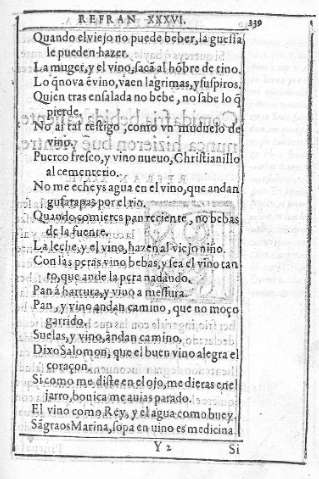 REFRAN XXXVI. 339
Quando el viejo no puede beber, la guessa
le pueden hazer.
La muger, y el vino, sacã al hõbre de tino.
Lo q̃ nova ẽ vino, va en lagrimas, y suspiros.
Quien tras ensalada no bebe, no sabe lo q̃
pierde.
No ai tal testigo, como vn muduelo de
vino.
Puerco fresco, y vino nueuo, Christianillo
al cementerio.
No me echeys agua en el vino, que andan
gusarapas por el rio.
Quando comieres pan reciente, no bebas
de la fuente.
La leche, y el vino, hazen al viejo niño.
Con las peras vino bebas, y sea el vino tan
to, que ande la pera nadando.
Pan á hartura, y vino a mesura.
Pan, y vino andan camino, que no moço
garrido.
Suelas, y vino, andan camino.
Dixo Salomon, que el buen vino alegra el
coraçon.
Si como me diste en el ojo, me dieras ẽ el
jarro, bonica me auias parado.
El vino como Rey, y el agua como buey.
Sãgraos Marina, sopa en uino es medicina.
Y 2 Si